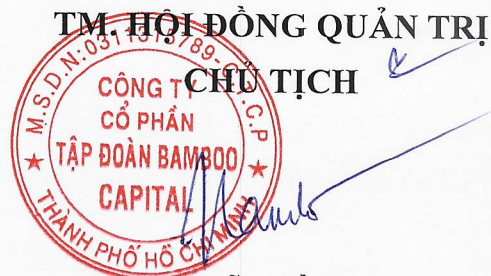 TM. HỘI ĐỒNG QUẢN TRỊ
CHỦ TỊCH
CÔNG TY
CỔ PHẦN
TẬP ĐOÀN BAMBOO
CAPITAL
THÀNH PHỐ HỒ CHÍ MINH